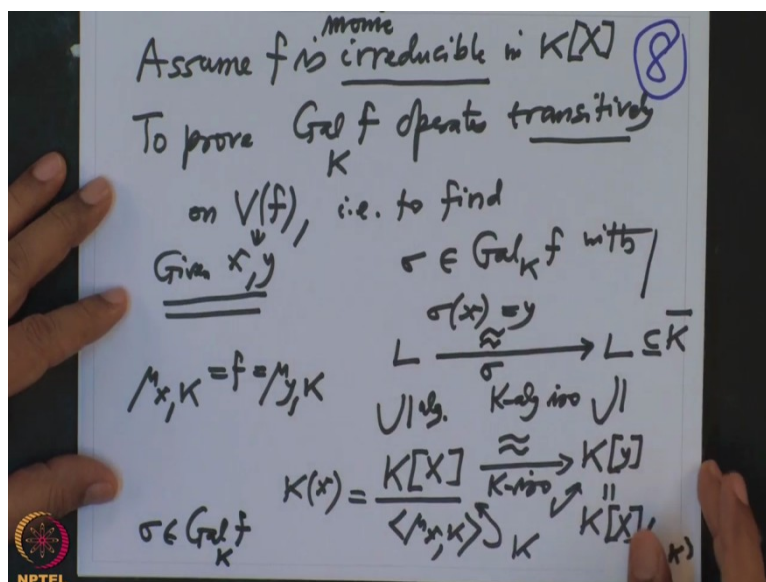 monic
Assume f is irreducible in K[X]
8
To prove Gal_K f operates transitively
on V(f), i.e. to find
Given x, y
σ ∈ Gal_K f with
σ(x) = y
L ≈ → σ L ⊆ K̄
μ_{x,K} = f = μ_{y,K}
∪| alg. K-alg iso ∪|
K(x) = K[X] / <μ_{x,K}> ≈ → K-iso K[y]
K = K[X]/
σ ∈ Gal_K f
NPTEL